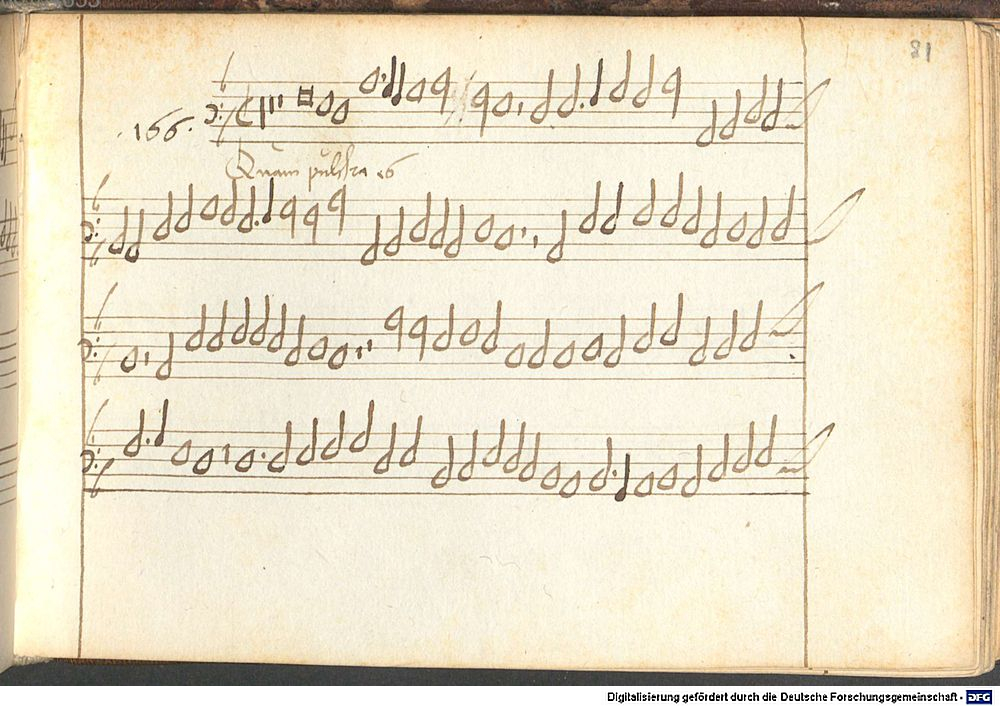 81
.166.
Quam pulchra es
Digitalisierung gefördert durch die Deutsche Forschungsgemeinschaft - DFG